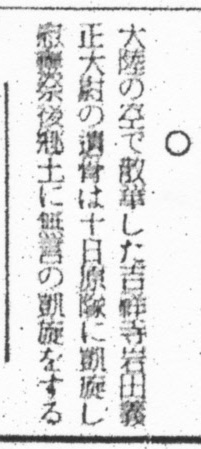 ○
大陸の空で散華した吉祥寺岩田義
正大尉の遺骨は十日原隊に凱旋し
慰霊祭後郷土に無言の凱旋をする